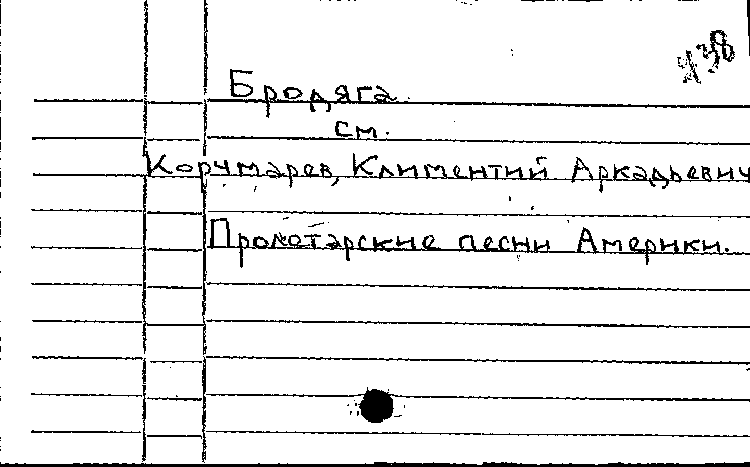 438
Бродяга.
см.
Корчмарев, Климентий Аркадьевич
Пролетарские песни Америки.